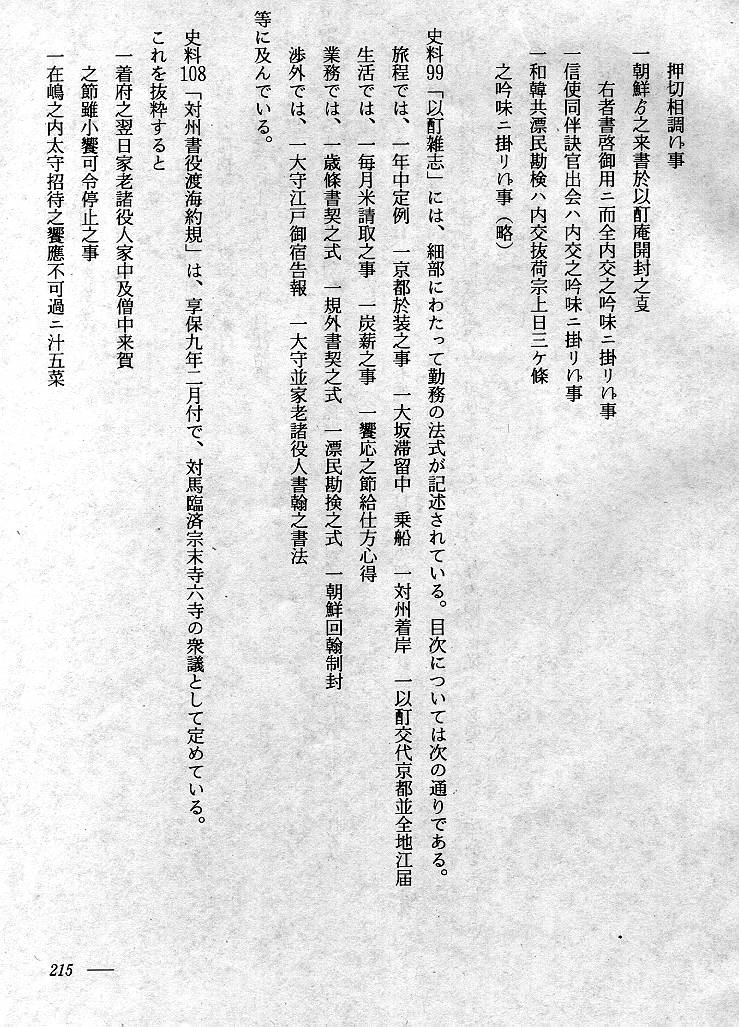 押切相調ハ事
一朝鮮ゟ之来書於以酊庵開封之支
右者書啓御用ニ而全内交之吟味ニ掛リハ事
一信使同伴訣官出会ハ内交之吟味ニ掛リハ事
一和韓共漂民勘検ハ内交抜荷宗上日三ケ條
之吟味ニ掛リハ事（略）
史料99「以酊雑志」には、細部にわたって勤務の法式が記述されている。目次については次の通りである。
旅程では、一年中定例　一京都於装之事　一大坂滞留中　乗船　一対州着岸　一以酊交代京都並全地江届
生活では、一毎月米請取之事　一炭薪之事　一饗応之節給仕方心得
業務では、一歳條書契之式　一規外書契之式　一漂民勘検之式　一朝鮮回翰制封
渉外では、一大守江戸御宿告報　一大守並家老諸役人書翰之書法
等に及んでいる。
史料108「対州書役渡海約規」は、享保九年二月付で、対馬臨済宗末寺六寺の衆議として定めている。
これを抜粋すると
一着府之翌日家老諸役人家中及僧中来賀
之節雖小饗可令停止之事
一在嶋之内太守招待之饗應不可過ニ汁五菜
215 —